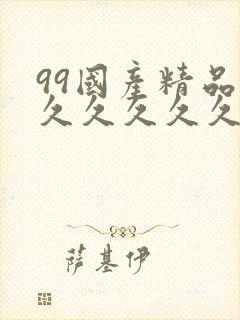 99國產精品
久久久久久
萨基伊